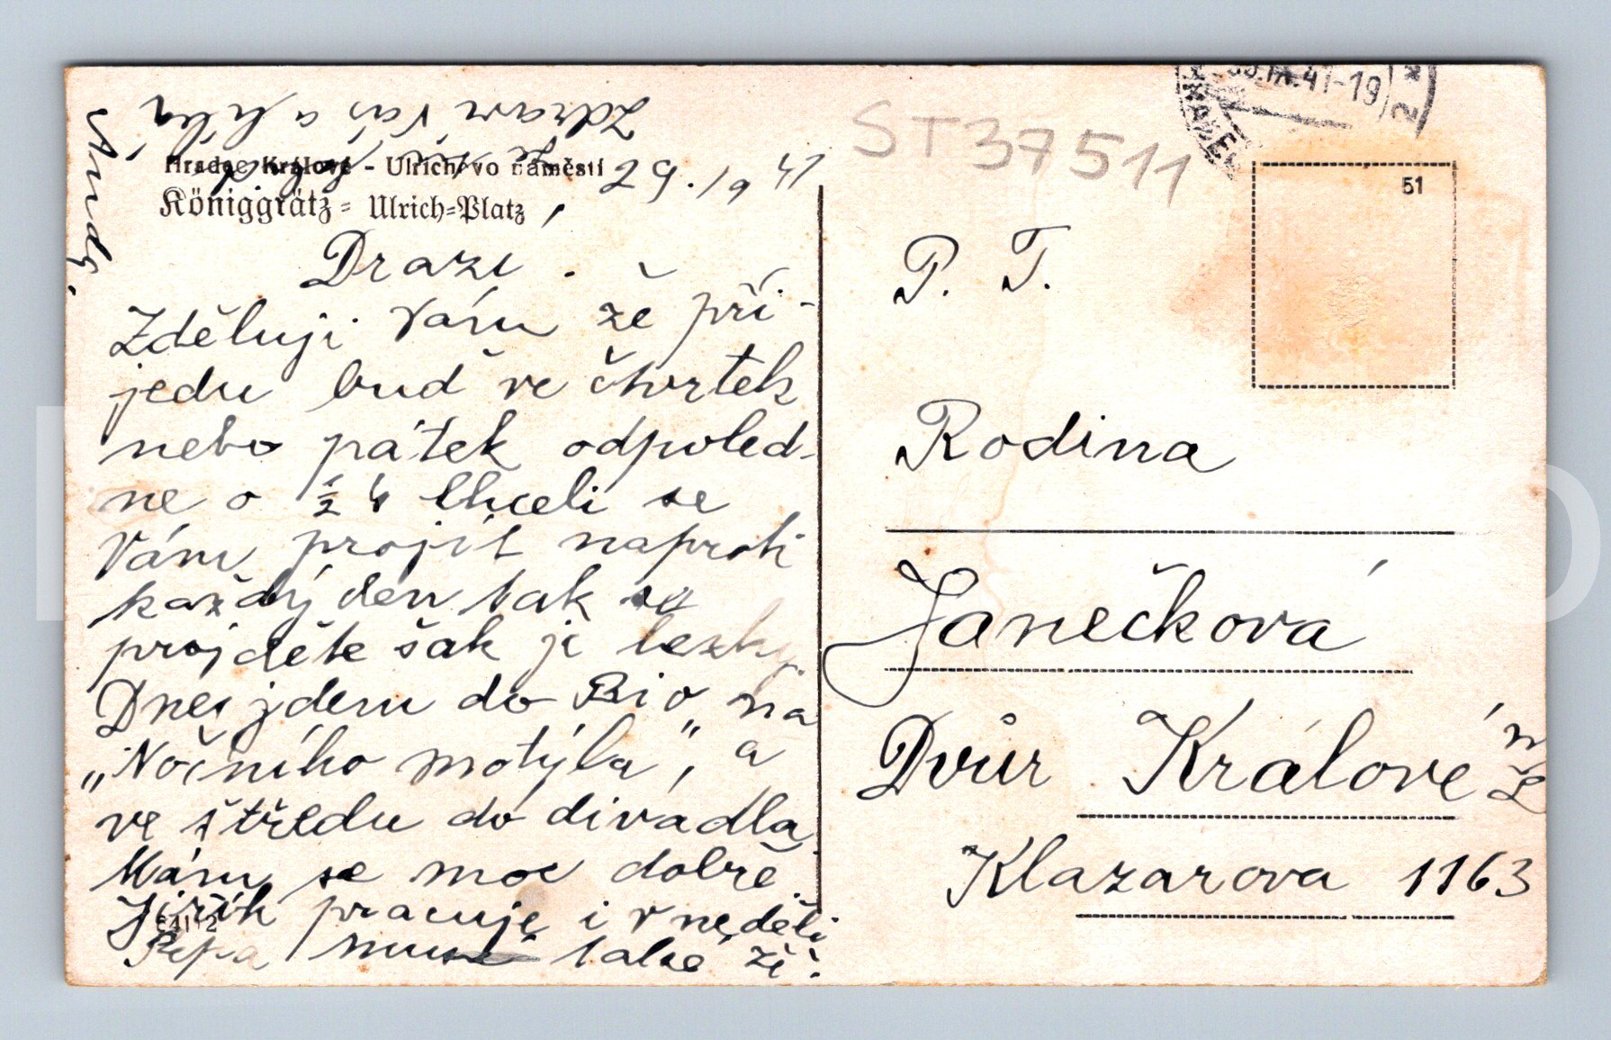 Hradec Králové - Ulrichovo náměstí
Königgrätz - Ulrich-Platz
29. 19 41
Drazí.
Zděluji Vám že při-
jedu buď ve čtvrtek
nebo pátek odpoled-
ne o ½ 4 Chceli se
Vám projít naproti
každý den tak se
projděte šak je hezky
Dnes jdem do Bio na
„Nočního motýla", a
ve středu do divadla
Mám se moc dobře.
Jiřík pracuje i v neděli
Pepa musí také
Zdraví Vás a líbá
64112
ST37511
41-19
51
P. T.
Rodina
Janečková
Dvůr Králové n/L
Klazarova 1163